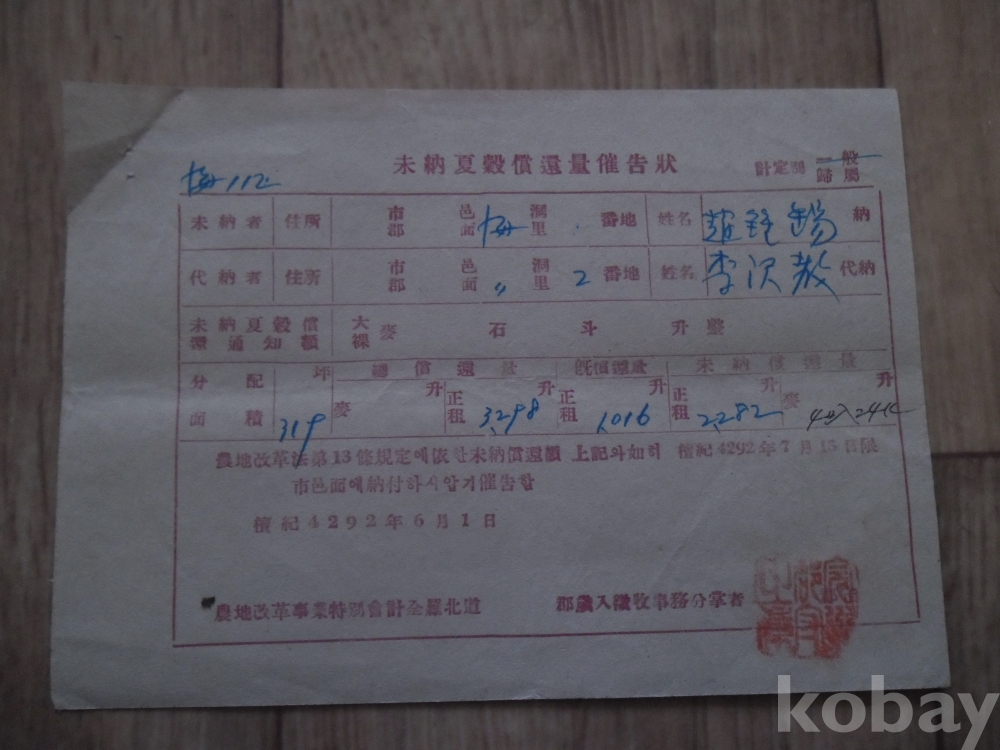 未納夏穀償還量催告狀
計定別 一般 歸屬
梅112
未納者 住所 市郡 邑面 梅 洞里 番地 姓名 趙鍾錫 納
代納者 住所 市郡 邑面 〃 洞里 2 番地 姓名 李沢敎 代納
未納夏穀償還通知額 大裸麥 石 斗 升 整
分配面積 坪 319
總償還量 麥 升 正租 升 3,298
旣償還量 正租 升 1,016
未納償還量 正租 升 2,282 麥 升
農地改革法第13條規定에依한未納償還額 上記와如히 檀紀4292年7月15日限
市邑面에納付하시압기催告함
檀紀4292年6月1日
農地改革事業特別會計全羅北道 郡歲入徵收事務分掌者
kobay